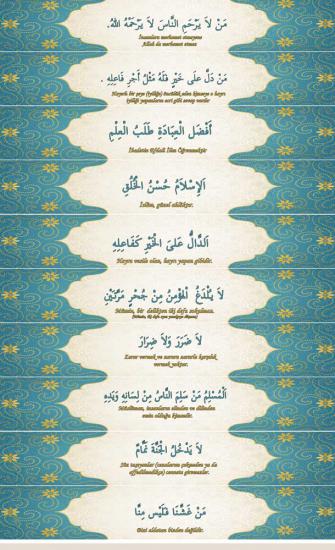 مَنْ لاَ يَرْحَمِ النَّاسَ لاَ يَرْحَمْهُ اللهُ.
İnsanlara merhamet etmeyene
Allah da merhamet etmez
مَنْ دَلَّ عَلَى خَيْرٍ فَلَهُ مِثْلُ أَجْرِ فَاعِلِهِ .
Hayırlı bir şeye (iyiliğe) öncülük eden kimseye o hayrı
iyiliği yapanların ecri gibi sevap vardır
أَفْضَلُ الْعِبَادَةِ طَلَبُ الْعِلْمِ
İbadetin Efdali İlim Öğrenmektir
اَلإِسْلاَمُ حُسْنُ الْخُلُقِ
İslâm, güzel ahlâktır.
اَلدَّالُّ عَلىَ الْخَيْرِ كَفَاعِلِهِ
Hayra vesile olan, hayrı yapan gibidir.
لاَ يُلْدَغُ الْمُؤْمِنُ مِنْ جُحْرٍ مَرَّتَيْنِ
Mümin, bir delikten iki defa sokulmaz.
لاَ ضَرَرَ وَلاَ ضِرَارَ
Zarar vermek ve zarara zararla karşılık
vermek yoktur.
اَلْمُسْلِمُ مَنْ سَلِمَ النَّاسُ مِنْ لِسَانِهِ وَيَدِهِ
Müslüman, insanların elinden ve dilinden
emin olduğu kimsedir.
لاَ يَدْخُلُ الْجَنَّةَ نَمَّامٌ
Söz taşıyanlar (cezalarını çekmeden ya da
affedilmedikçe) cennete giremezler.
مَنْ غَشَّنَا فَلَيْسَ مِنَّا
Bizi aldatan bizden değildir.